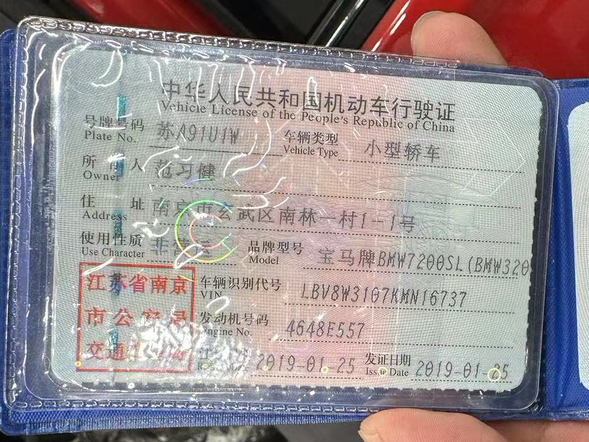 中华人民共和国机动车行驶证
Vehicle License of the People's Republic of China
号牌号码 Plate No. 苏A91U1W 车辆类型 Vehicle Type 小型轿车
所 人 Owner 范习健
住 址 Address 南京市玄武区南林一村1-1号
使用性质 Use Character 非 品牌型号 Model 宝马牌BMW7200SL(BMW320
江苏省南京 车辆识别代号 VIN LBV8W3107KMN16737
市公安局 发动机号码 Engine No. 4648E557
交通 2019-01-25 发证日期 Issue Date 2019-01-25